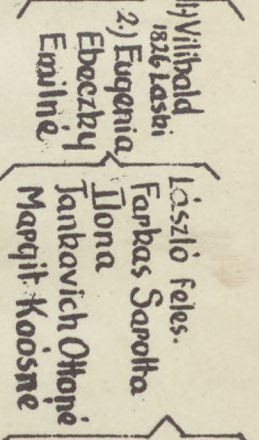 1.) Vilibald
1826 Laski
2.) Eugenia
Ebeczky
Emilné
László feles.
Farkas Sarolta
Ilona
Jankavich Ottóné
Margit Koósné